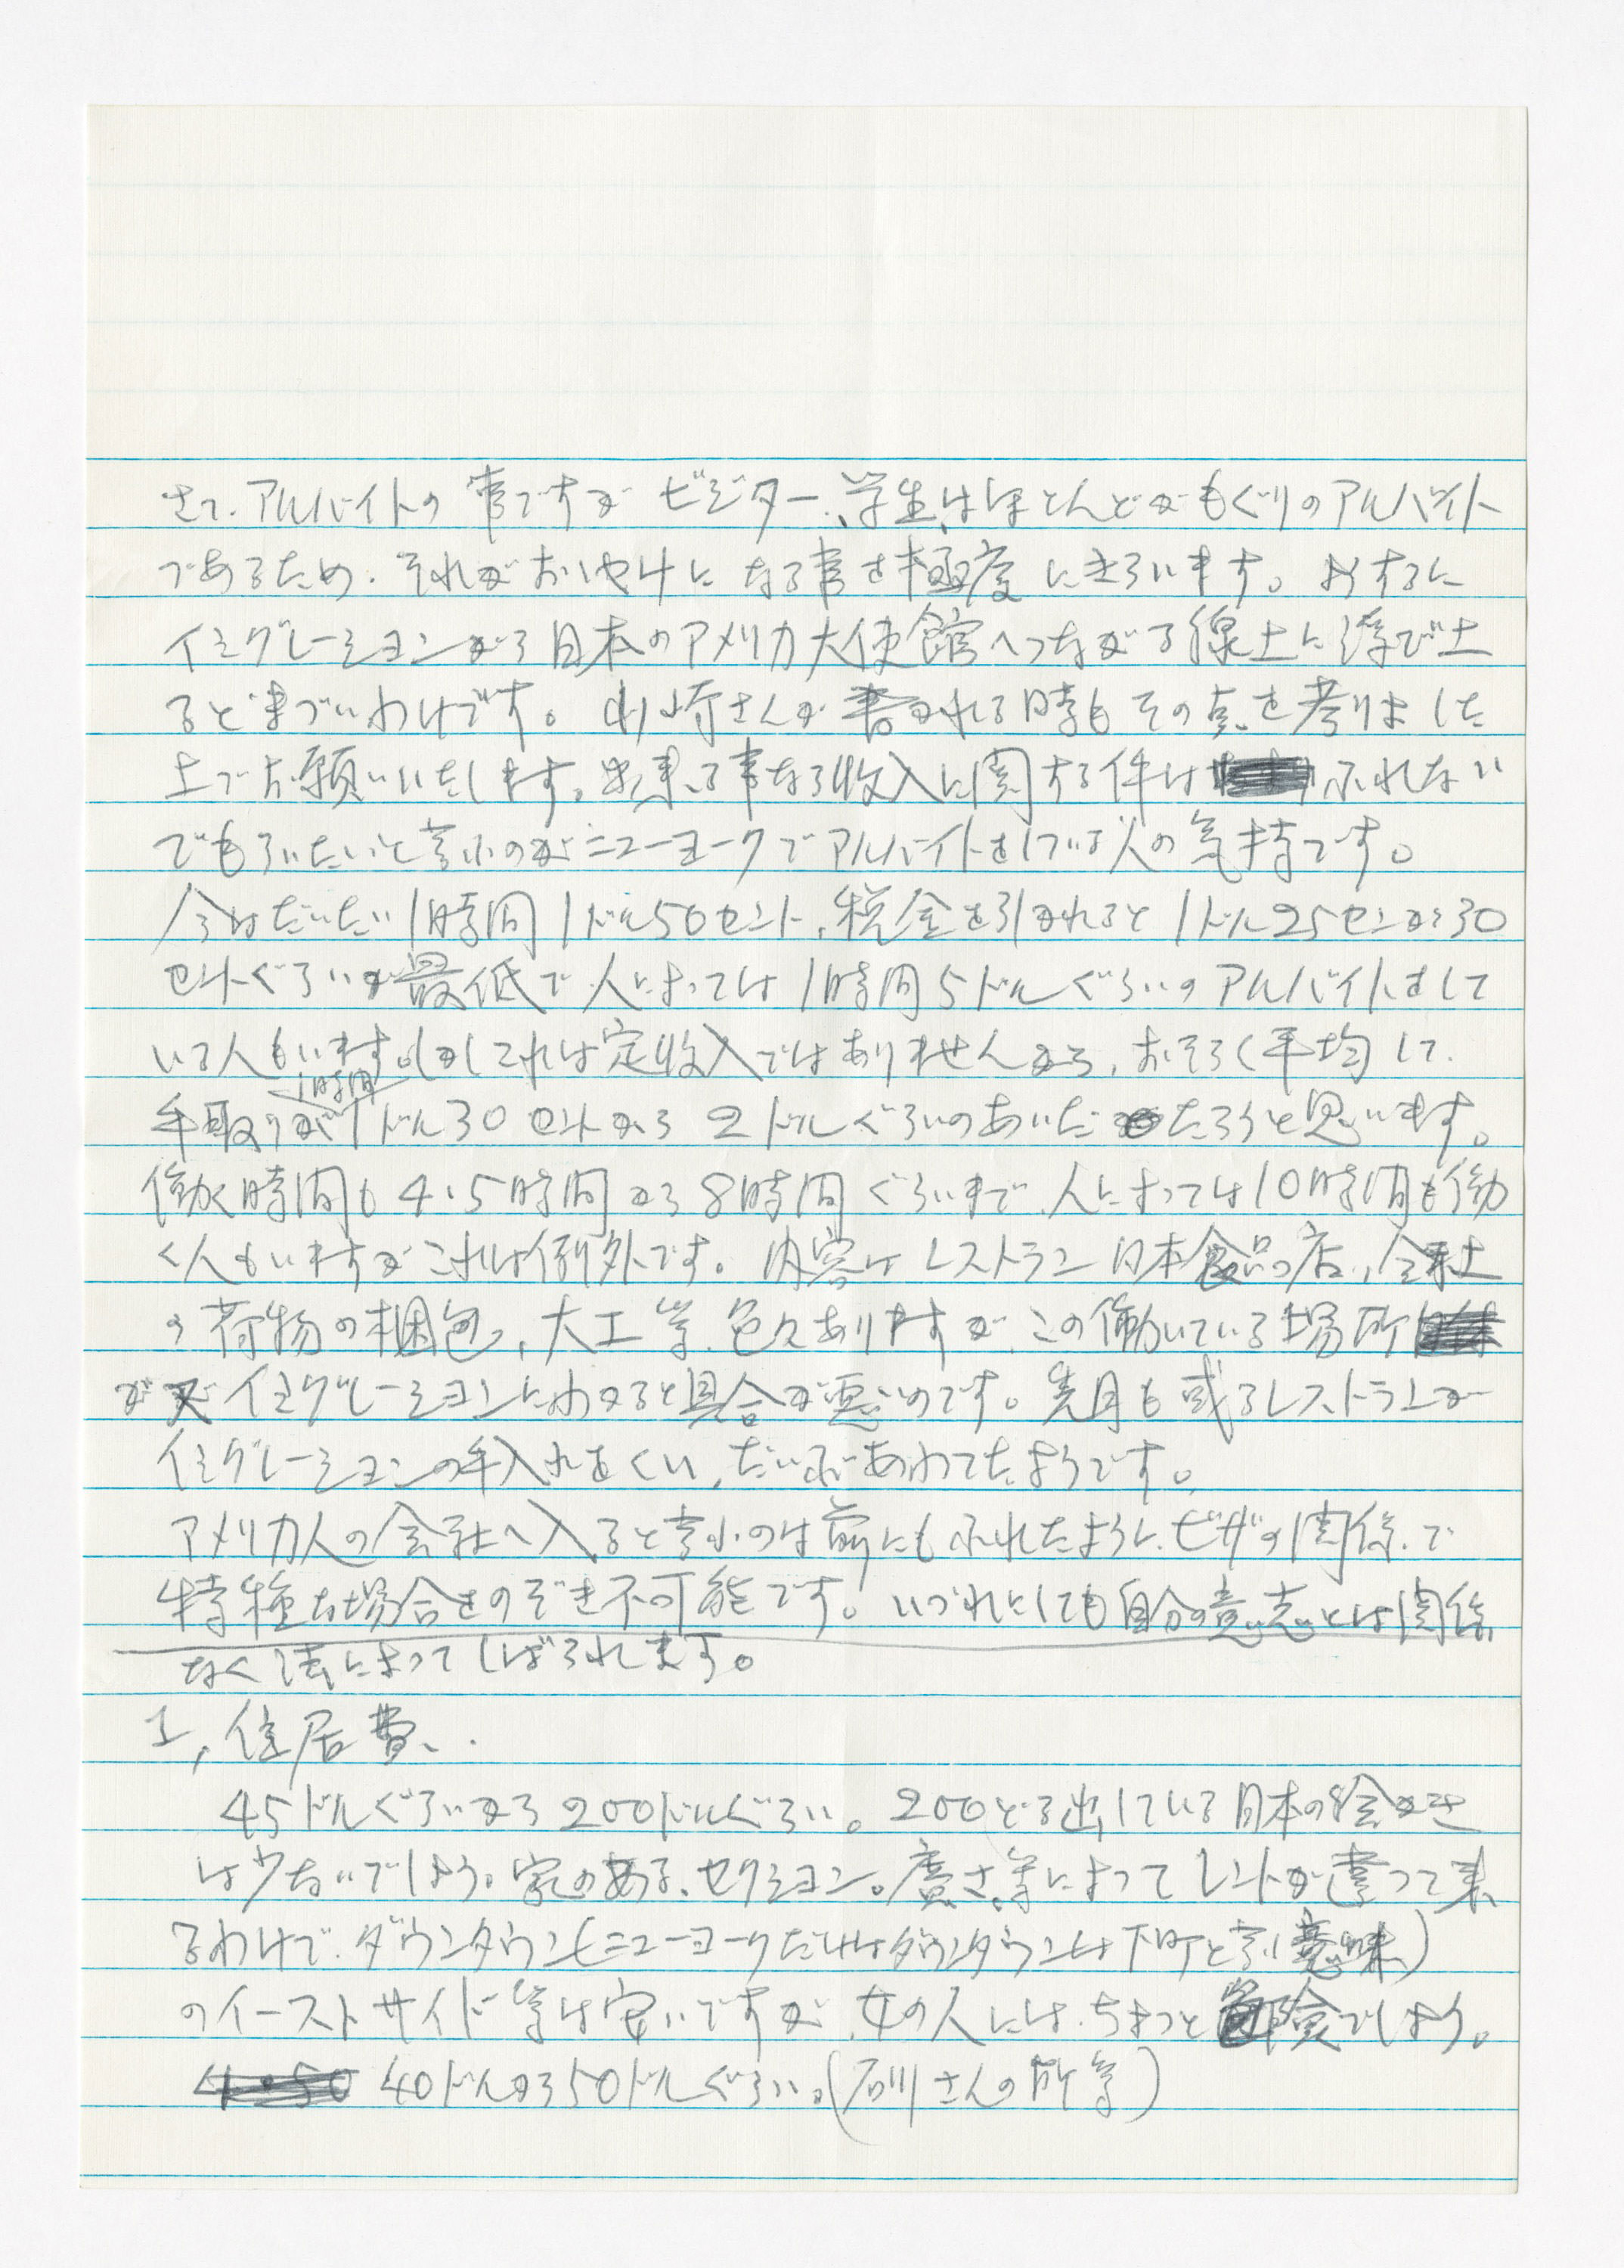 さて、アルバイトの事ですが ビジター、学生はほとんどがもぐりのアルバイト
であるため、それがおゝやけになる事を極度にきらいます。ようするに
イミグレーションから日本のアメリカ大使館へつながる線上に浮び上
るとまづいわけです。山崎さんが書かれる時もその点を考りょした
上でお願いいたします。出来る事なら収入に関する件はふれない
でもらいたいと言ふのがニューヨークでアルバイトをしている人の気持です。
今はだいたい1時間1ドル50セント、税金を引かれると1ドル25センから30
セントぐらいが最低で、人によっては1時間5ドルぐらいのアルバイトをして
いる人もいます。しかしこれは定収入ではありませんから、おそらく平均して、
手取りが1時間1ドル30セントから2ドルぐらいのあいだだろうと思います。
働く時間も4、5時間から8時間ぐらいまで、人によっては10時間も働
く人もいますがこれは例外です。内容はレストラン 日本食品の店、会社
の荷物の梱包、大工等、色々ありますが、この働いている場所
がイミグレーションにわかると具合が悪いのです。先月も或るレストランが
イミグレーションの手入れをくい、だいぶあわてたようです。
アメリカ人の会社へ入ると言ふのは前にもふれたように、ビザの関係で
特種な場合をのぞき不可能です。いづれにしても自分の意志とは関係
なく法によってしばられます。
1, 住居費、
45ドルぐらいから200ドルぐらい。200どる出している日本の絵かき
は少ないでしょう。家のある、セクション。廣さ、等によってレントが違って来
るわけで、ダウンタウン(ニューヨークだけはダウンタウンは下町と言ふ意味)
のイーストサイド等は安いですが、女の人には、ちょっと冒険でしょう。
40ドルから50ドルぐらい。(石川さんの所等)